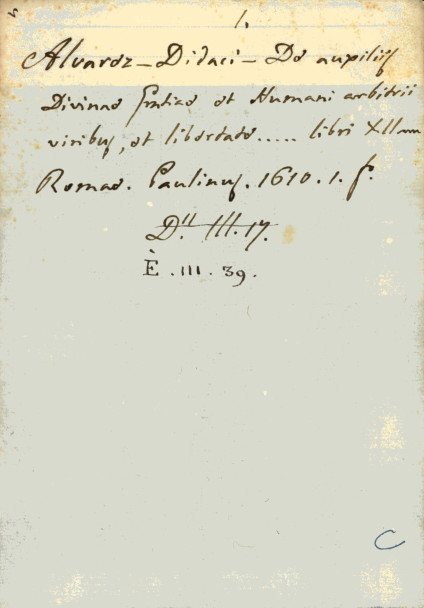 1.
Alvarez - Didaci - De auxiliis
Divinae Gratiae et Humani arbitrii
viribus, et libertate ..... libri XII
Romae. Paulinus. 1610. 1. f.
D.ii III. 17.
È. III. 39.
C